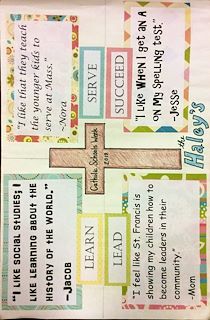 "I LIKE SOCIAL STUDIES; I
LIKE LEARNING ABOUT THE
HISTORY OF THE WORLD."
~JACOB
"I like that they teach
the younger kids to
serve at Mass."
~Nora
LEARN
SERVE
Catholic Schools Week
LEAD
SUCCEED
"I feel like St. Francis is
showing my children how to
become leaders in their
community."
~Mom
"I LIKE WHEN I GET AN A
ON MY SPELLING TEST."
~JESSE
the Haley's